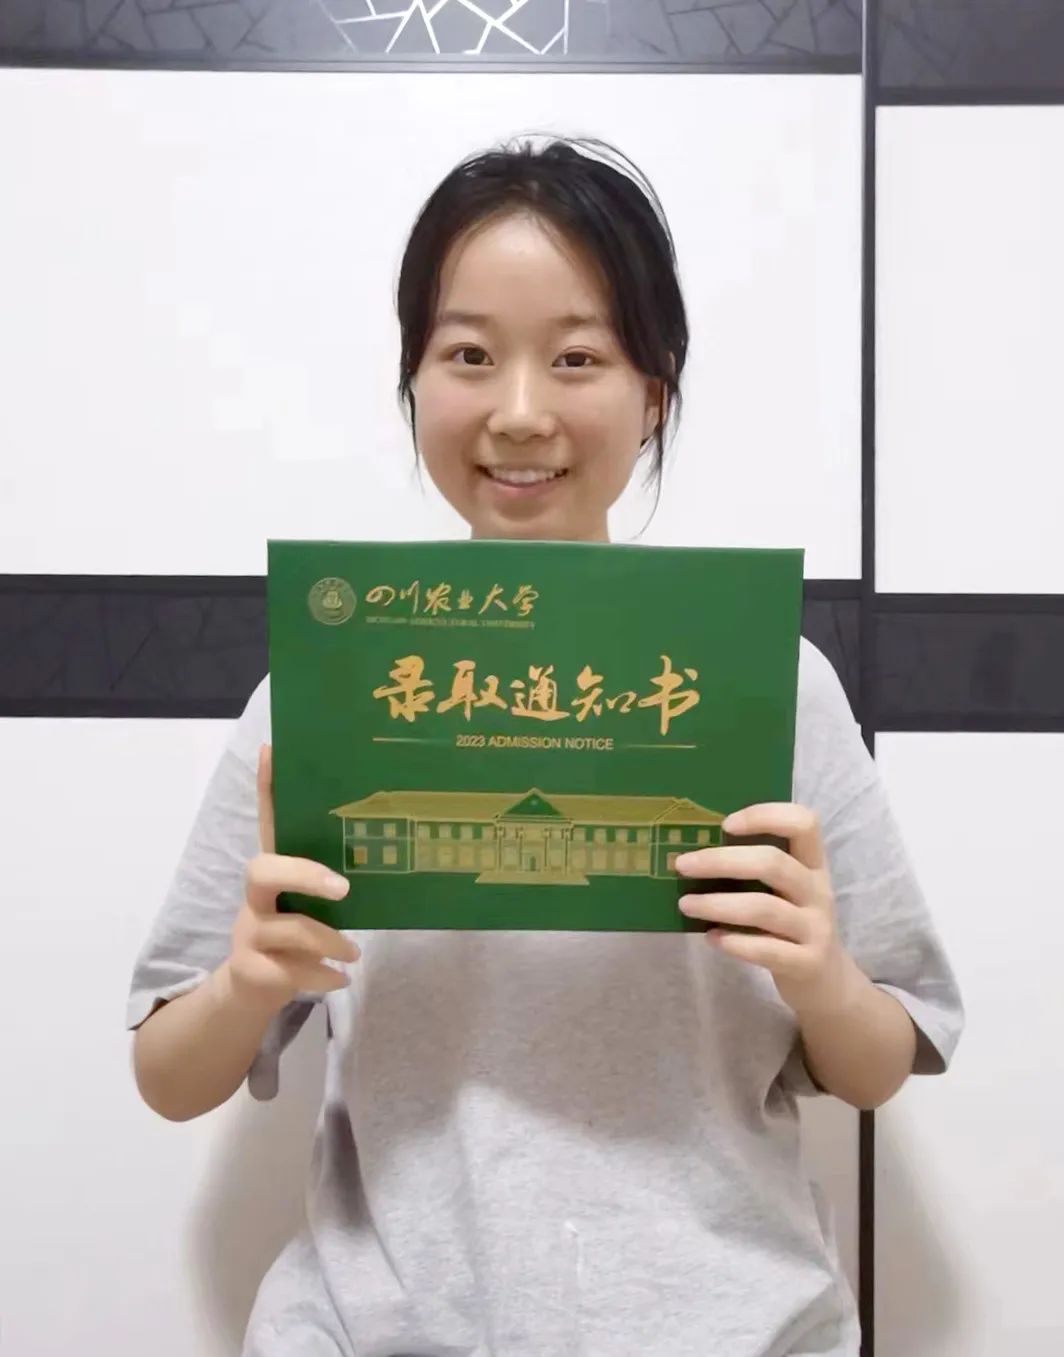 四川农业大学
SICHUAN AGRICULTURAL UNIVERSITY
录取通知书
2023 ADMISSION NOTICE